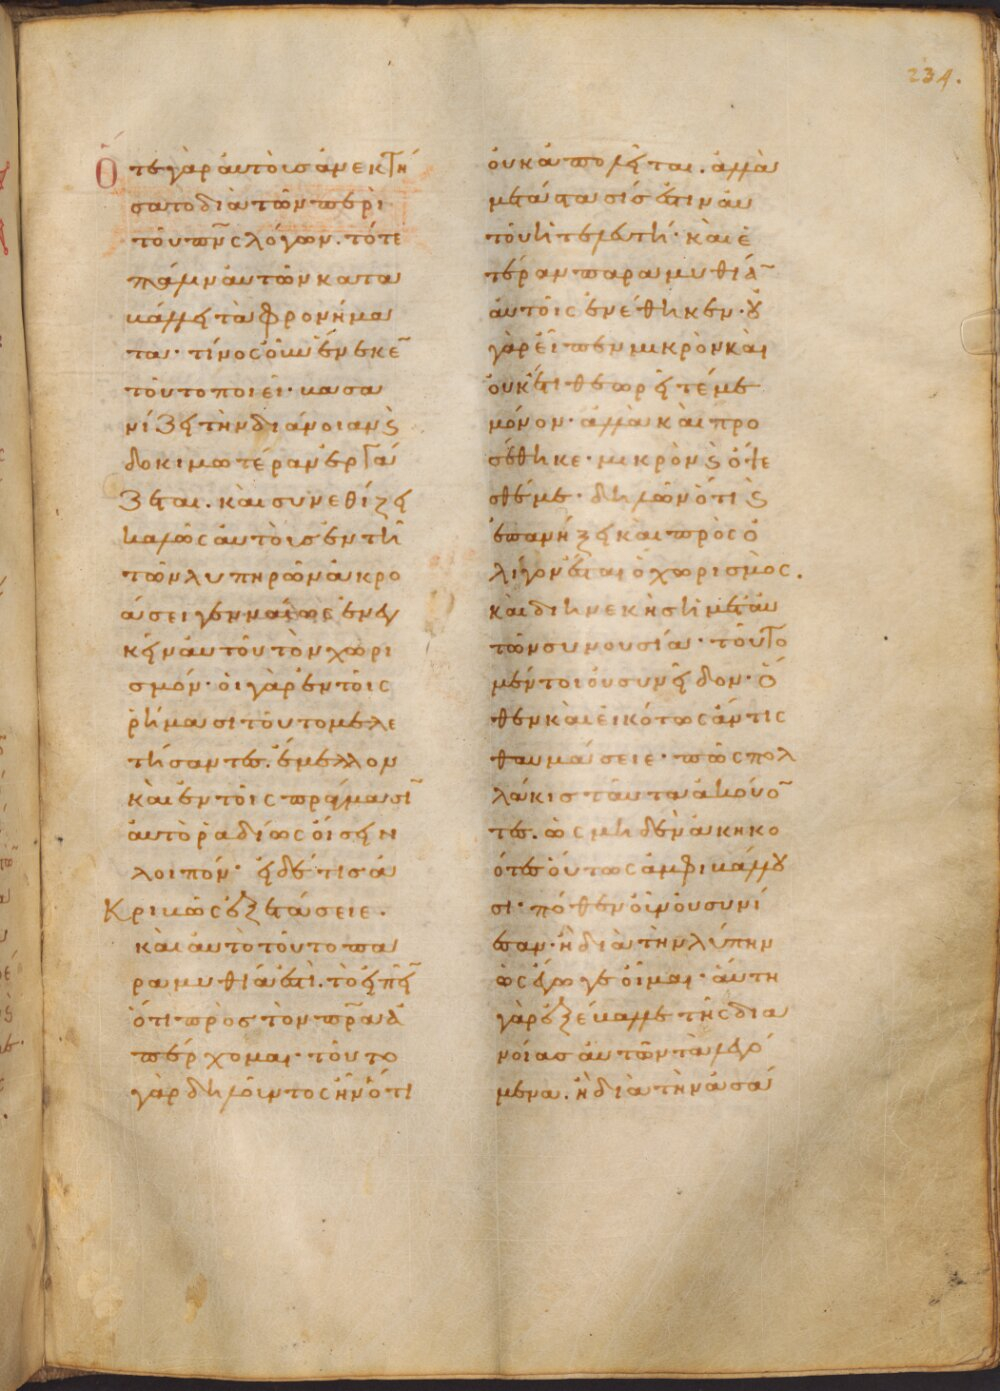 234.
Ὅτε γὰρ ἀυτοὺσ ἀνεκτή
σατο διὰ τῶν περὶ
τοῦ πν̅ς λόγων. τότε
πάλιν ἀυτῶν κατα
βάλλει τὰ φρονήμα
τα· τίνος οὖν ἕνεκε̅
τοῦτο ποιεῖ· βασα
νίζει τὴν διάνοιαν ϗ
δοκιμωτέραν ἐργά
ζεται. καὶ συνεθίζει
καλῶς ἀυτοὺσ ἐν τῆ
τῶν λυπηρῶν ἀκρο
άσει γενναίως ἐνεγ
κεῖν ἀυτοῦ τὸν χωρι
σμόν· ὁι γὰρ ἐν τοῖς
ῥήμασι τοῦτο μελε
τήσαντες. ἔμελλον
καὶ ἐν τοῖς πράγμασι̅
ἀυτὸ ῥαδίως οἴσειν
λοιπόν· εἰ δέ τισ ἀ
κριβῶς ἐξετάσειε.
καὶ ἀυτὸ τοῦτο πα
ραμυθία ἐστὶ. τὸ ειπει̅
ὅτι πρὸσ τὸν πρ̅α ἀ
πέρχομαι· τοῦτο
γὰρ δηλοῦντος ἦν ὅτι
οὐκ ἀπολεῖται. ἀλλὰ
μετάστασίς ἐστιν ἀυ
τοῦ ἡ τελευτή· καὶ ἑ
τέραν παραμυθία̅
ἀυτοῖς ἐνέθηκεν· ȣ
γὰρ εἶπεν μικρὸν καὶ
οὐκέτι θεωρεῖτέ με
μόνον· ἀλλὰ καὶ προ
σέθηκε· μικρὸν ϗ ὄψε
σθέ με· δηλῶν ὅτι ϗ
ἐπανήξει καὶ πρὸς ὀ
λίγον ἔσται ὁ χωρισμὸς.
καὶ διηνεκὴσ ἡ μετ ἀυ
τῶν συνουσία· τοῦτο
μέντοι οὐ συνεῖδον· ὅ
θεν καὶ εἰκότως ἄν τις
θαυμάσειε· πῶς πολ
λάκισ ταῦτα ἀκούο̅
τες. ὡς μηδὲν ἀκηκο
ότες οὕτως ἀμφιβάλλȣ
σι· πόθεν οὖν οὐ συνί
εσαν· ἢ διὰ τὴν λύπην
ὡς ἔγωγε οἶμαι· αὕτη
γὰρ ἐξέβαλλε τῆς δια
νοίασ ἀυτῶν τὰ λεγό
μενα. ἢ διὰ τὴν ἀσά